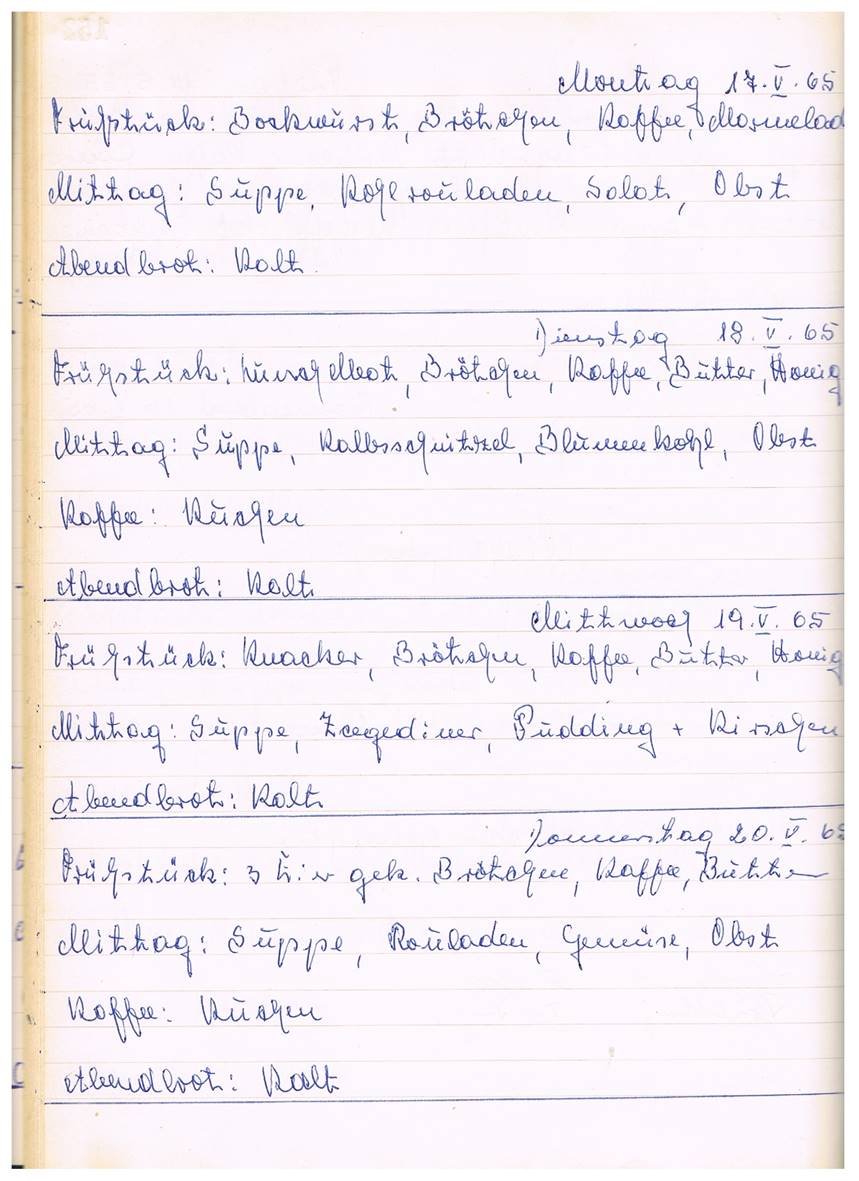 Montag 17. V. 65
Frühstück: Bockwurst, Brötchen, Kaffee, Marmelad
Mittag: Suppe, Kohlrouladen, Salat, Obst
Abendbrot: Kalt
Dienstag 18. V. 65
Frühstück: Brötchen, Kaffee, Butter, Honig
Mittag: Suppe, Kalbsschnitzel, Blumenkohl, Obst
Kaffee: Kuchen
Abendbrot: Kalt
Mittwoch 19. V. 65
Frühstück: Knacker, Brötchen, Kaffee, Butter, Honig
Mittag: Suppe, Zcegediner, Pudding + Kirschen
Abendbrot: Kalt
Donnerstag 20. V. 65
Frühstück: 3 Eier gek. Brötchen, Kaffee, Butter
Mittag: Suppe, Rouladen, Gemüse, Obst
Kaffee: Kuchen
Abendbrot: Kalt